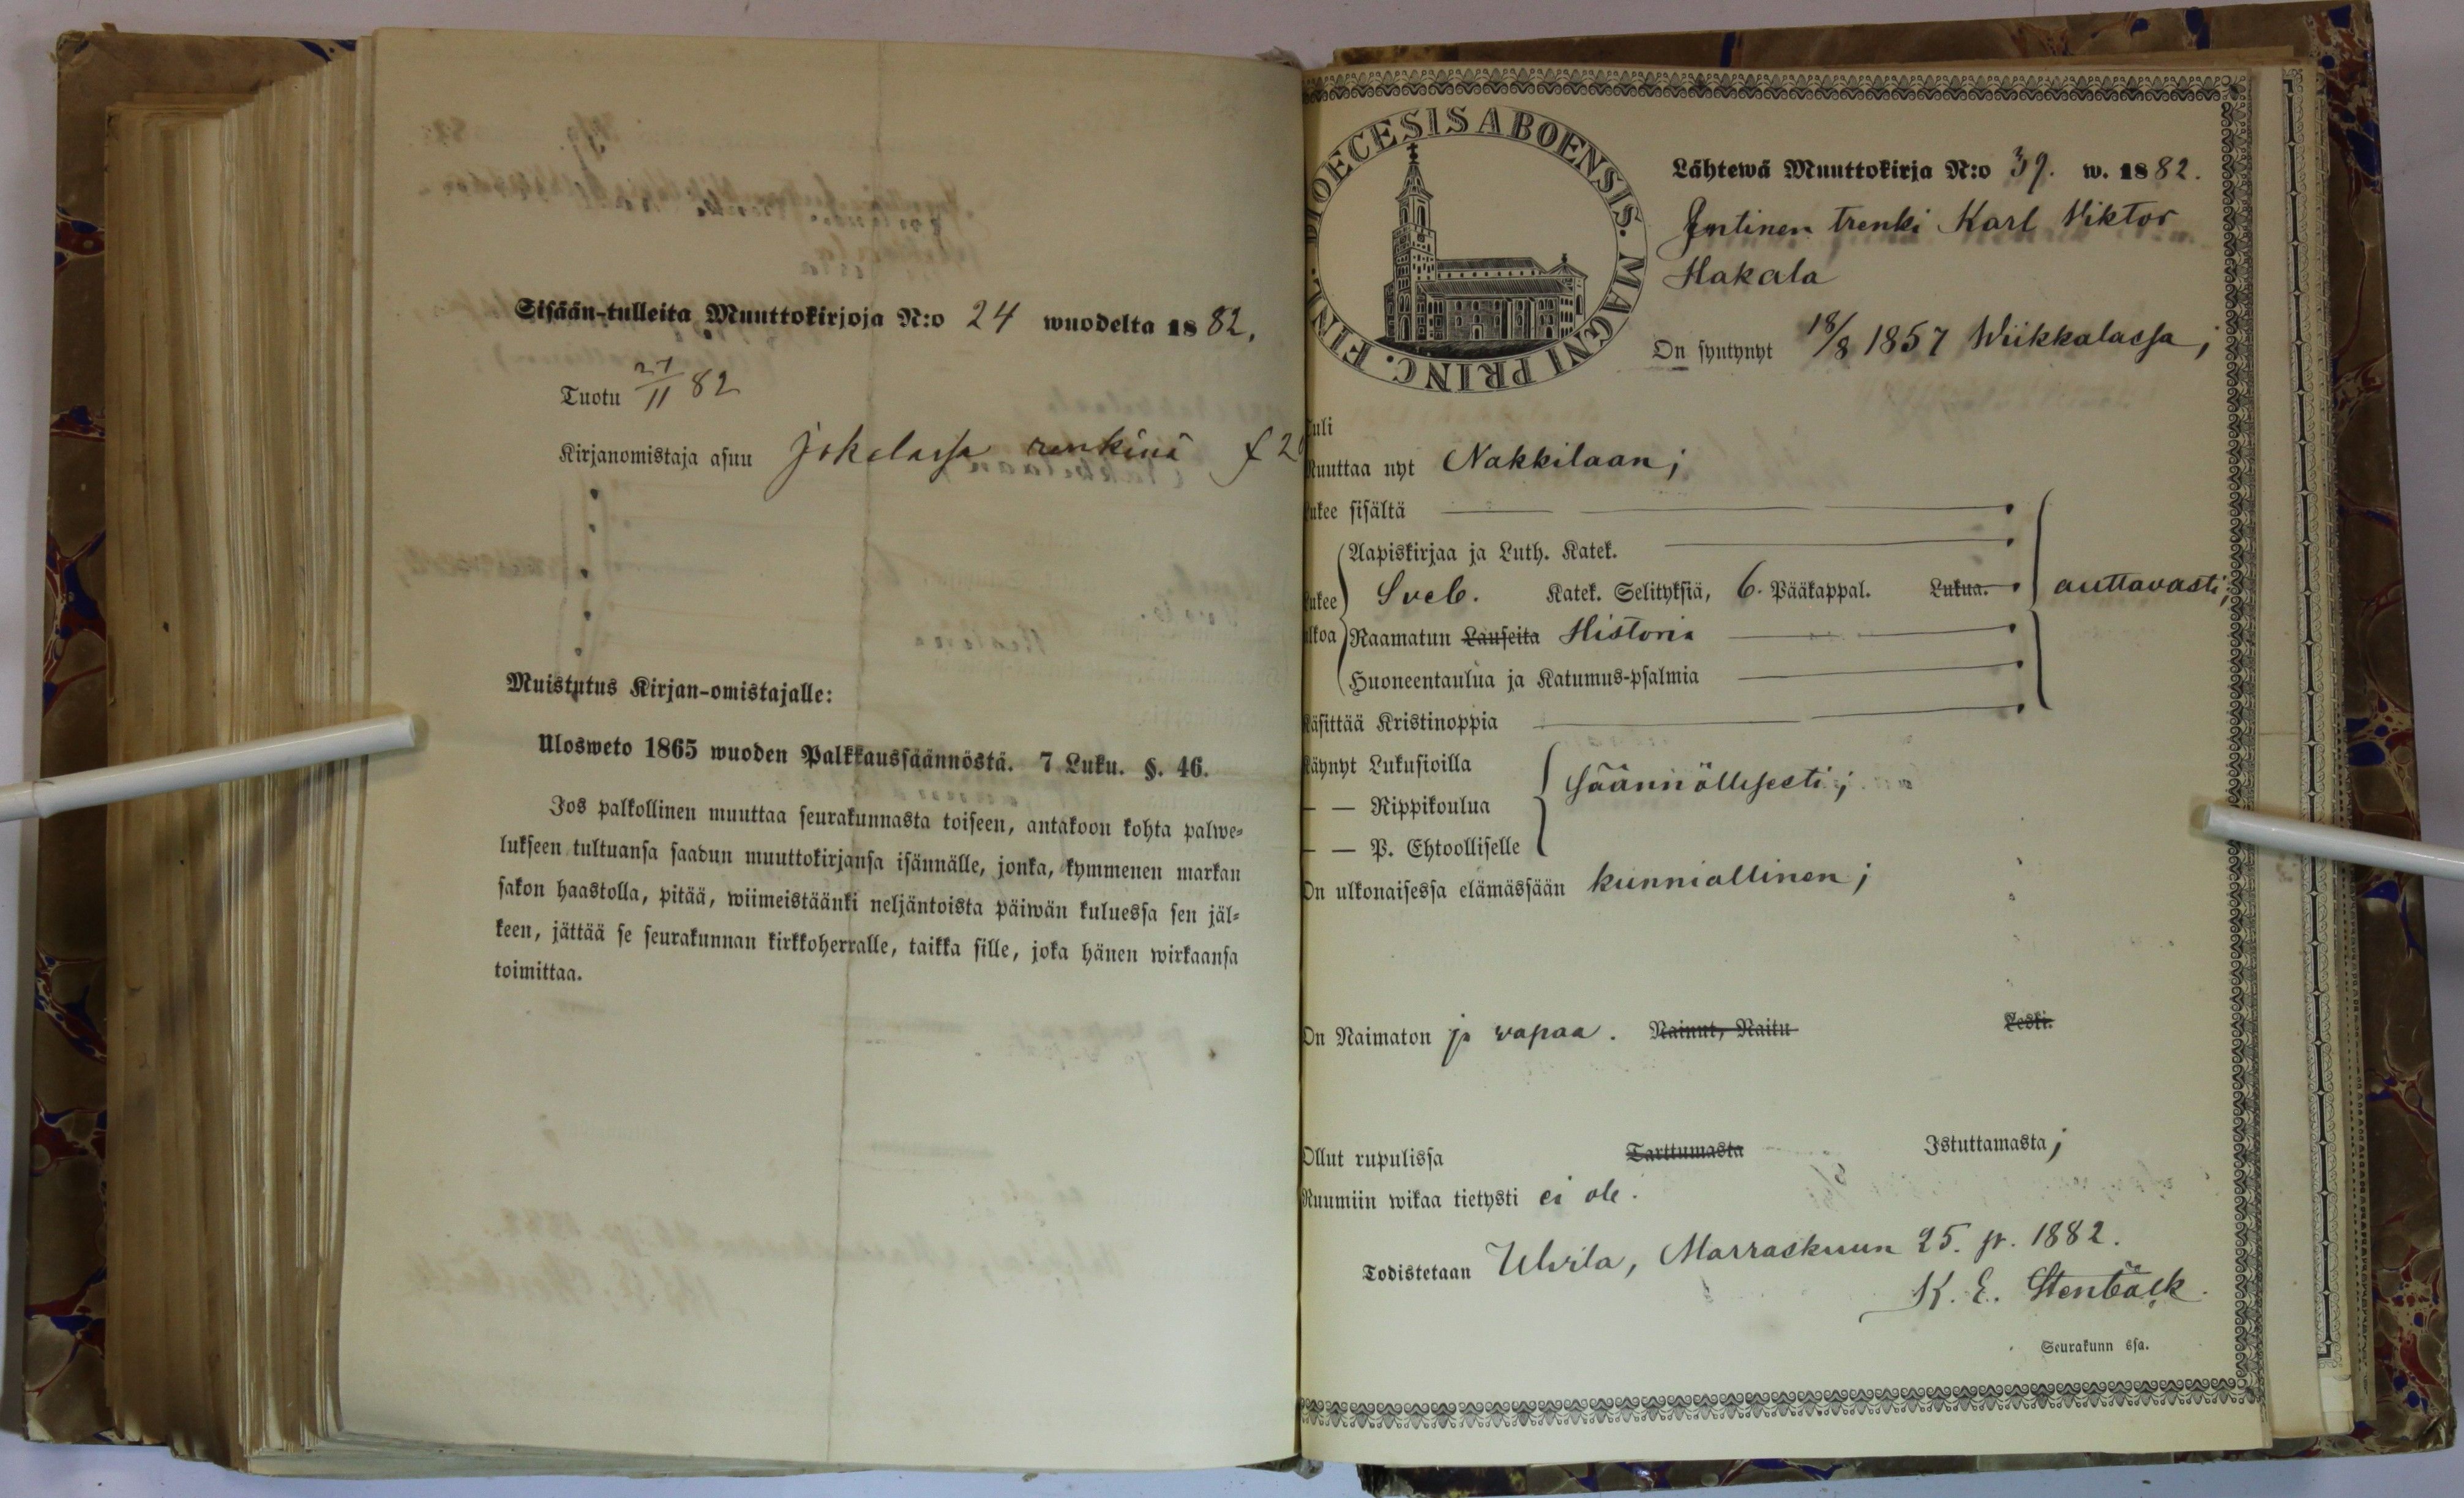 Sisään-tulleita Muuttokirjoja N:o 24 wuodelta 1882.
Tuotu 27/11 82
Kirjanomistaja asuu Jokelassa renkinä f 2
Muistutus Kirjan-omistajalle:
Ulosweto 1865 wuoden Palkkaussäännöstä. 7 Luku. §. 46.
Jos palkollinen muuttaa seurakunnasta toiseen, antakoon kohta palwe=
lukseen tultuansa saadun muuttokirjansa isännälle, jonka, kymmenen markan
sakon haastolla, pitää, wiimeistäänki neljäntoista päiwän kuluessa sen jäl=
keen, jättää se seurakunnan kirkkoherralle, taikka sille, joka hänen wirkaansa
toimittaa.
DIOECESIS ABOENSIS. MAGNI PRINC. FINL.
Lähtewä Muuttokirja N:o 39. w. 1882.
Entinen trenki Karl Viktor
Hakala
On syntynyt 18/8 1857 Wiikkalassa;
Tuli
Muuttaa nyt Nakkilaan;
Lukee sisältä
Aapiskirjaa ja Luth. Katek.
Lukee Sveb. Katek. Selityksiä, 6. Pääkappal. Lukua. auttavasti;
ulkoa Raamatun Lauseita Historia
Huoneentaulua ja Katumus-psalmia
Käsittää Kristinoppia
Käynyt Lukusioilla
— — Rippikoulua säännöllisesti;
— — P. Ehtoolliselle
On ulkonaisessa elämässään kunniallinen;
On Naimaton ja vapaa. Nainut, Naitu Leski.
Ollut rupulissa Tarttumasta Istuttamasta;
Ruumiin wikaa tietysti ei ole.
Todistetaan Ulvila, Marraskuun 25. p. 1882.
K. E. Stenbäck.
Seurakunn ssa.